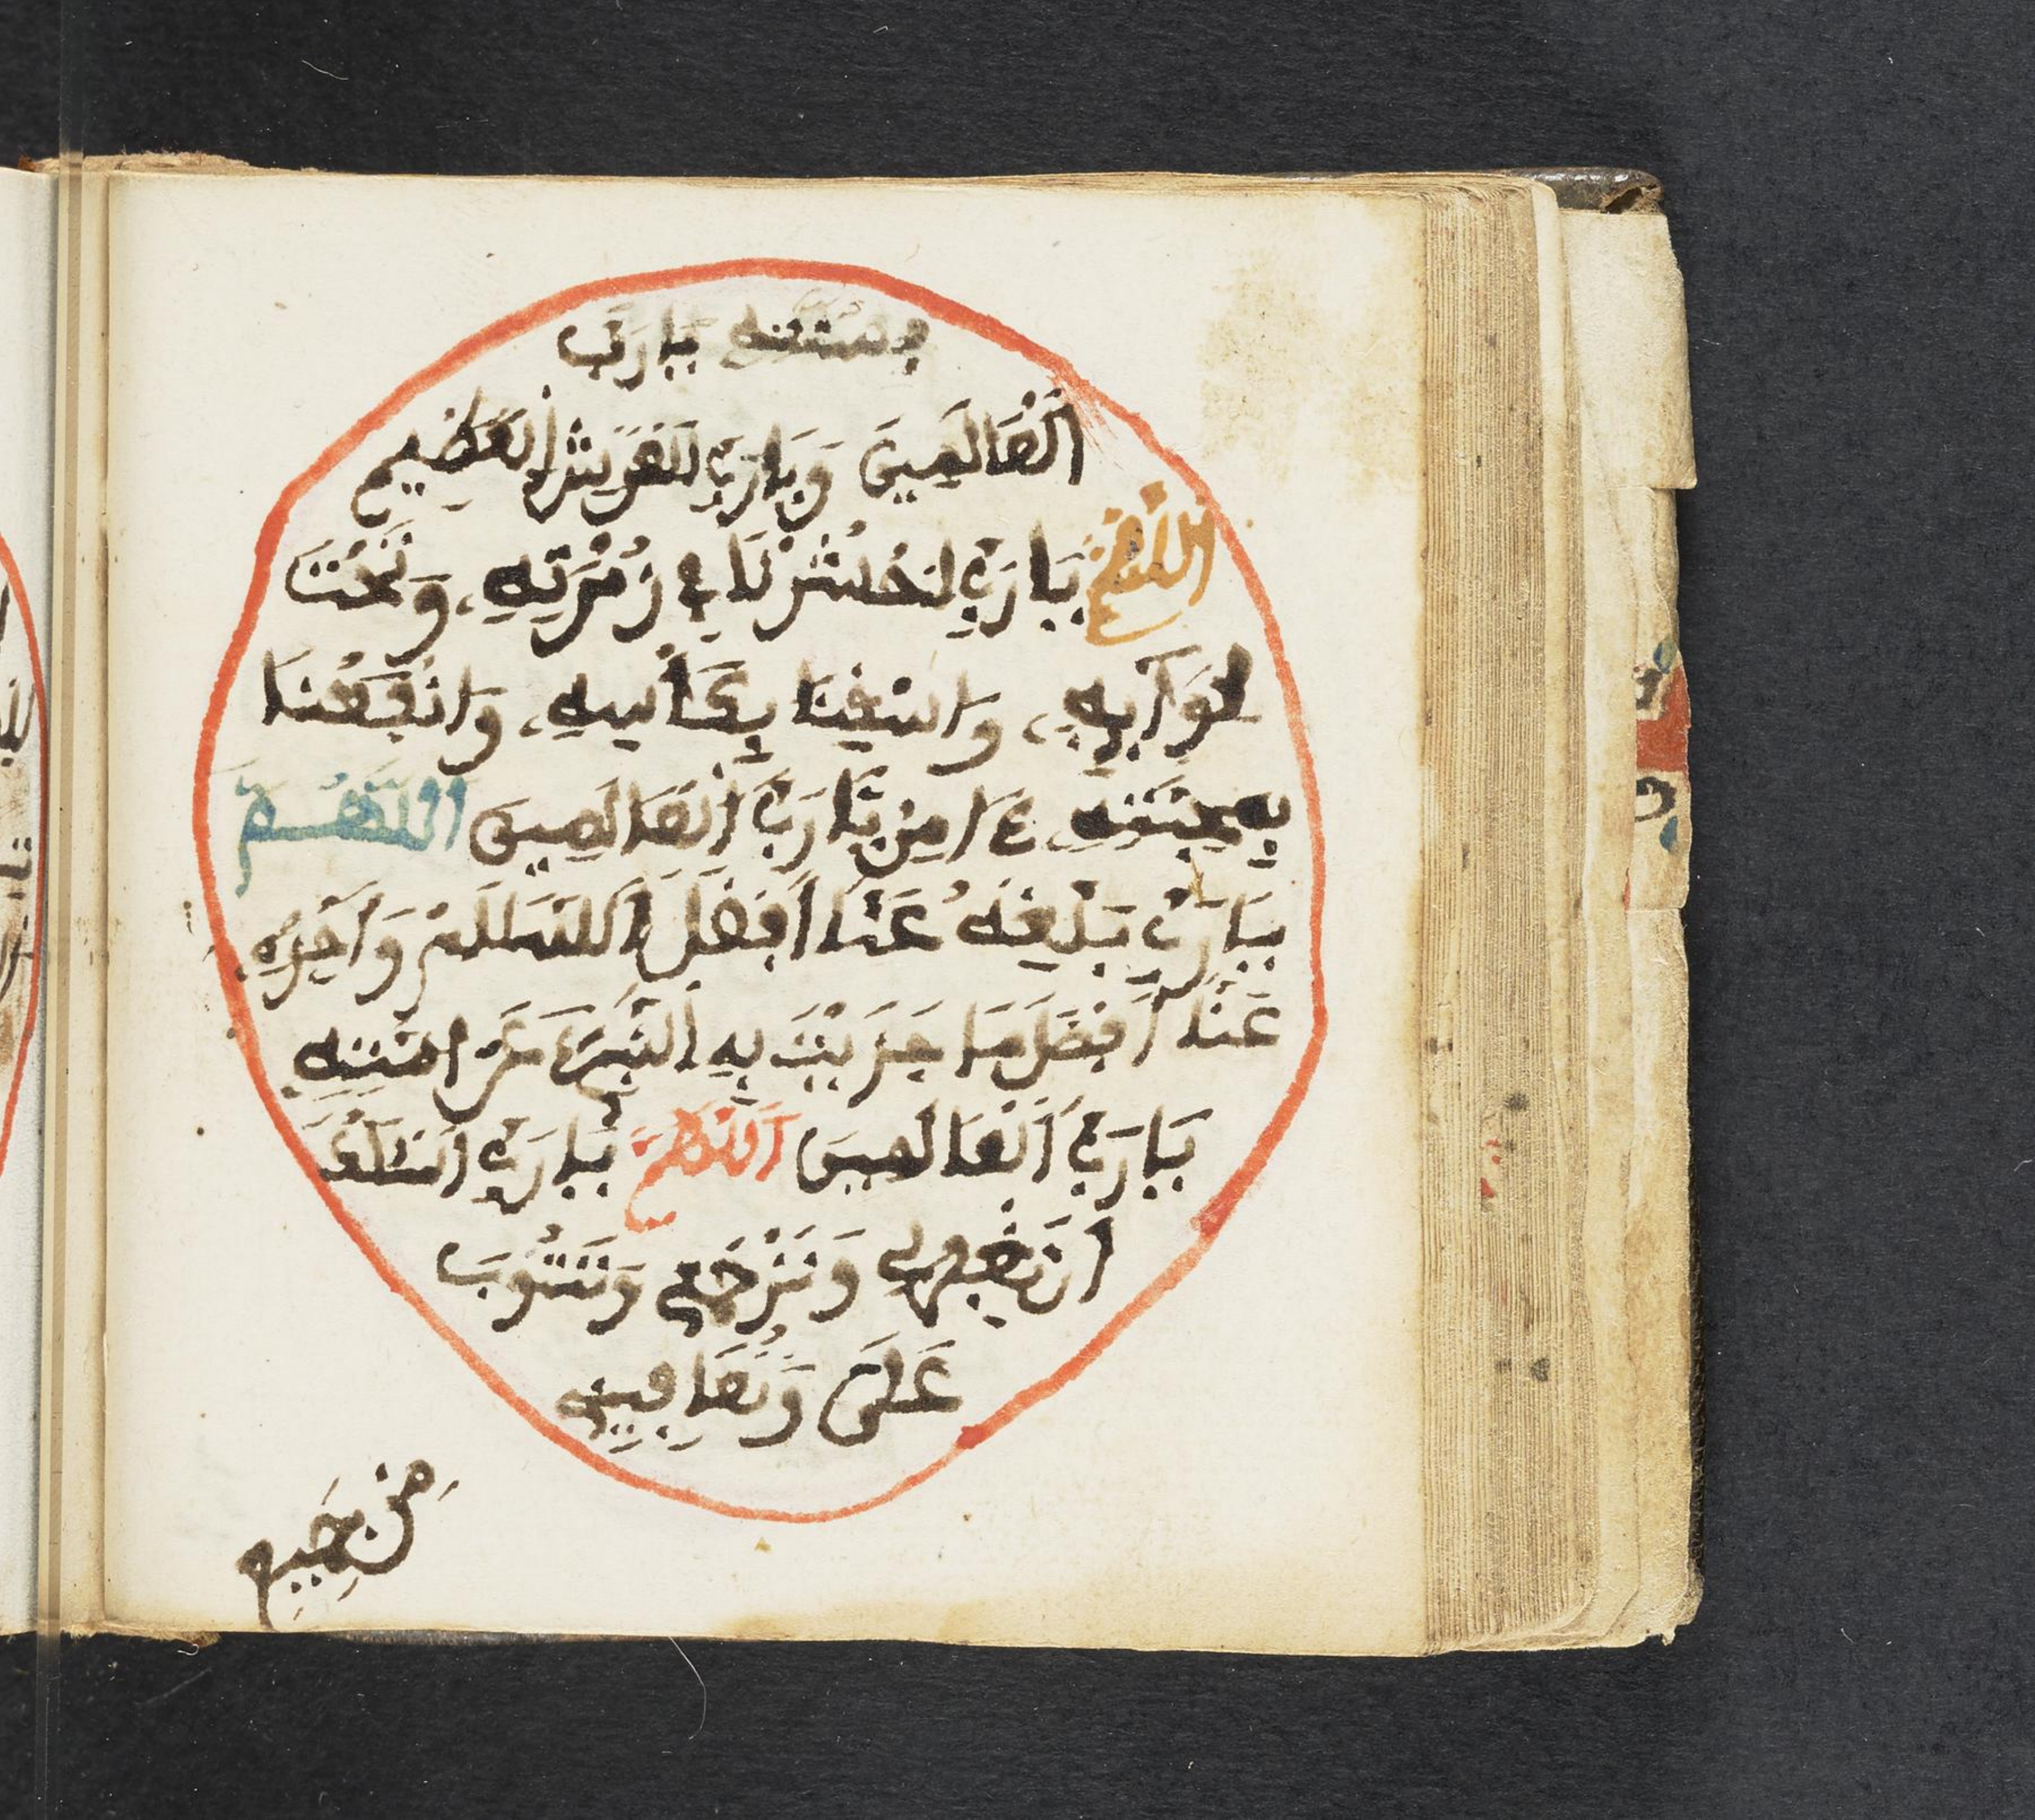 بسنته يارب
العالمين ويارب العرش العظيم
اللهم يارب احشرنا في زمرته، وتحت
لوآيه، واسقنا بكأسه، وانفعنا
بمحبته ءامين يارب العالمين اللهم
يارب بلغه عنا أفضل السلام واجزه
عنا أفضل ما جزيت به النبيء عن امته
يارب العالمين اللهم يارب اسئلك
ان تغفرلي وترحمني وتتوب
علي وتعافيني
من جميع